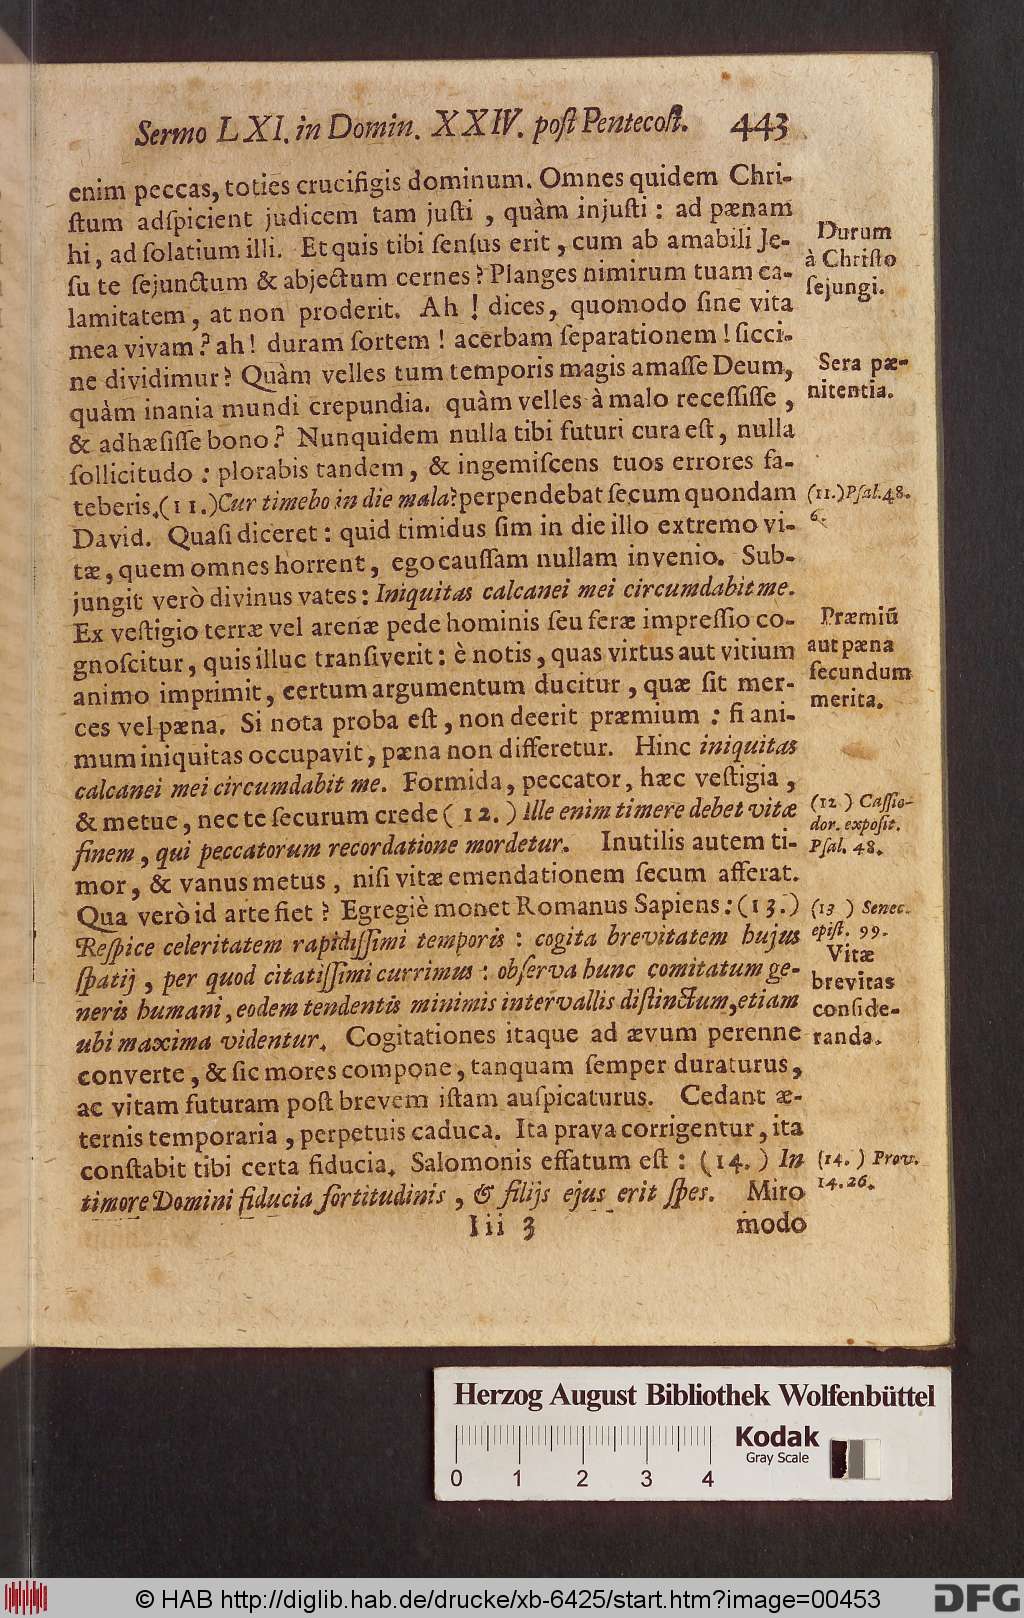 Sermo LXI. in Domin. XXIV. poſt Pentecoſt. 443
enim peccas, toties crucifigis dominum. Omnes quidem Chri-
ſtum adſpicient judicem tam juſti , quàm injuſti : ad pænam
hi, ad ſolatium illi. Et quis tibi ſenſus erit, cum ab amabili Je-
ſu te ſejunctum & abjectum cernes? Planges nimirum tuam ca-
lamitatem, at non proderit. Ah ! dices, quomodo ſine vita
mea vivam? ah! duram ſortem ! acerbam ſeparationem ! ſicci-
ne dividimur? Quàm velles tum temporis magis amaſſe Deum,
quàm inania mundi crepundia. quàm velles à malo receſſiſſe ,
& adhæſiſſe bono? Nunquidem nulla tibi futuri cura eſt, nulla
ſollicitudo : plorabis tandem, & ingemiſcens tuos errores fa-
teberis.(11.) Cur timebo in die mala? perpendebat ſecum quondam
David. Quaſi diceret: quid timidus ſim in die illo extremo vi-
tæ, quem omnes horrent, ego cauſſam nullam invenio. Sub-
jungit verò divinus vates: Iniquitas calcanei mei circumdabit me.
Ex veſtigio terræ vel arenæ pede hominis ſeu feræ impreſſio co-
gnoſcitur, quis illuc tranſiverit: è notis, quas virtus aut vitium
animo imprimit, certum argumentum ducitur, quæ ſit mer-
ces vel pæna. Si nota proba eſt, non deerit præmium : ſi ani-
mum iniquitas occupavit, pæna non differetur. Hinc iniquitas
calcanei mei circumdabit me. Formida, peccator, hæc veſtigia ,
& metue, nec te ſecurum crede (12.) Ille enim timere debet vitæ
finem, qui peccatorum recordatione mordetur. Inutilis autem ti-
mor, & vanus metus, niſi vitæ emendationem ſecum afferat.
Qua verò id arte fiet? Egregiè monet Romanus Sapiens: (13.)
Reſpice celeritatem rapidiſſimi temporis : cogita brevitatem hujus
ſpatij, per quod citatiſſimi currimus : obſerva hunc comitatum ge-
neris humani, eodem tendentis minimis intervallis diſtinctum, etiam
ubi maxima videntur. Cogitationes itaque ad ævum perenne
converte, & ſic mores compone, tanquam ſemper duraturus,
ac vitam futuram poſt brevem iſtam auſpicaturus. Cedant æ-
ternis temporaria, perpetuis caduca. Ita prava corrigentur, ita
conſtabit tibi certa fiducia. Salomonis effatum eſt : (14.) In
timore Domini fiducia fortitudinis, & filijs ejus erit ſpes. Miro
Iii 3 modo
Durum
à Chriſto
ſejungi.
Sera pæ-
nitentia.
(11.) Pſal. 48.
6.
Præmiũ
aut pæna
ſecundum
merita.
(12) Caſſio-
dor. expoſit.
Pſal. 48.
(13) Senec.
epiſt. 99.
Vitæ
brevitas
conſide-
randa.
(14.) Prov.
14. 26.
Herzog August Bibliothek Wolfenbüttel
Kodak
Gray Scale
0 1 2 3 4
© HAB http://diglib.hab.de/drucke/xb-6425/start.htm?image=00453
DFG